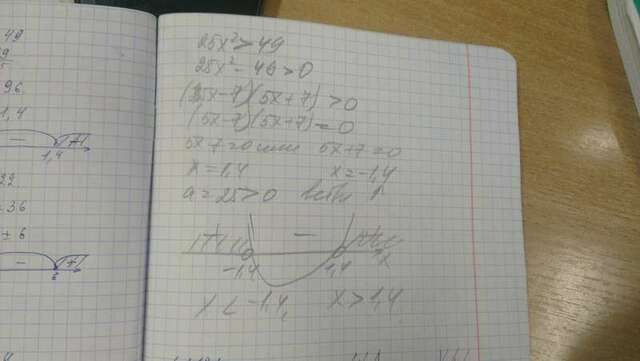 49
96.
1,4
−
+
1,4
22
36
± 6
−
+
25x² > 49
25x² - 49 > 0
(5x-7)(5x+7) > 0
(5x-7)(5x+7) = 0
5x-7=0 или 5x+7=0
x = 1,4 x = -1,4
a = 25 > 0 ветви ↑
+ − +
-1,4 1,4 x
x < -1,4, x > 1,4